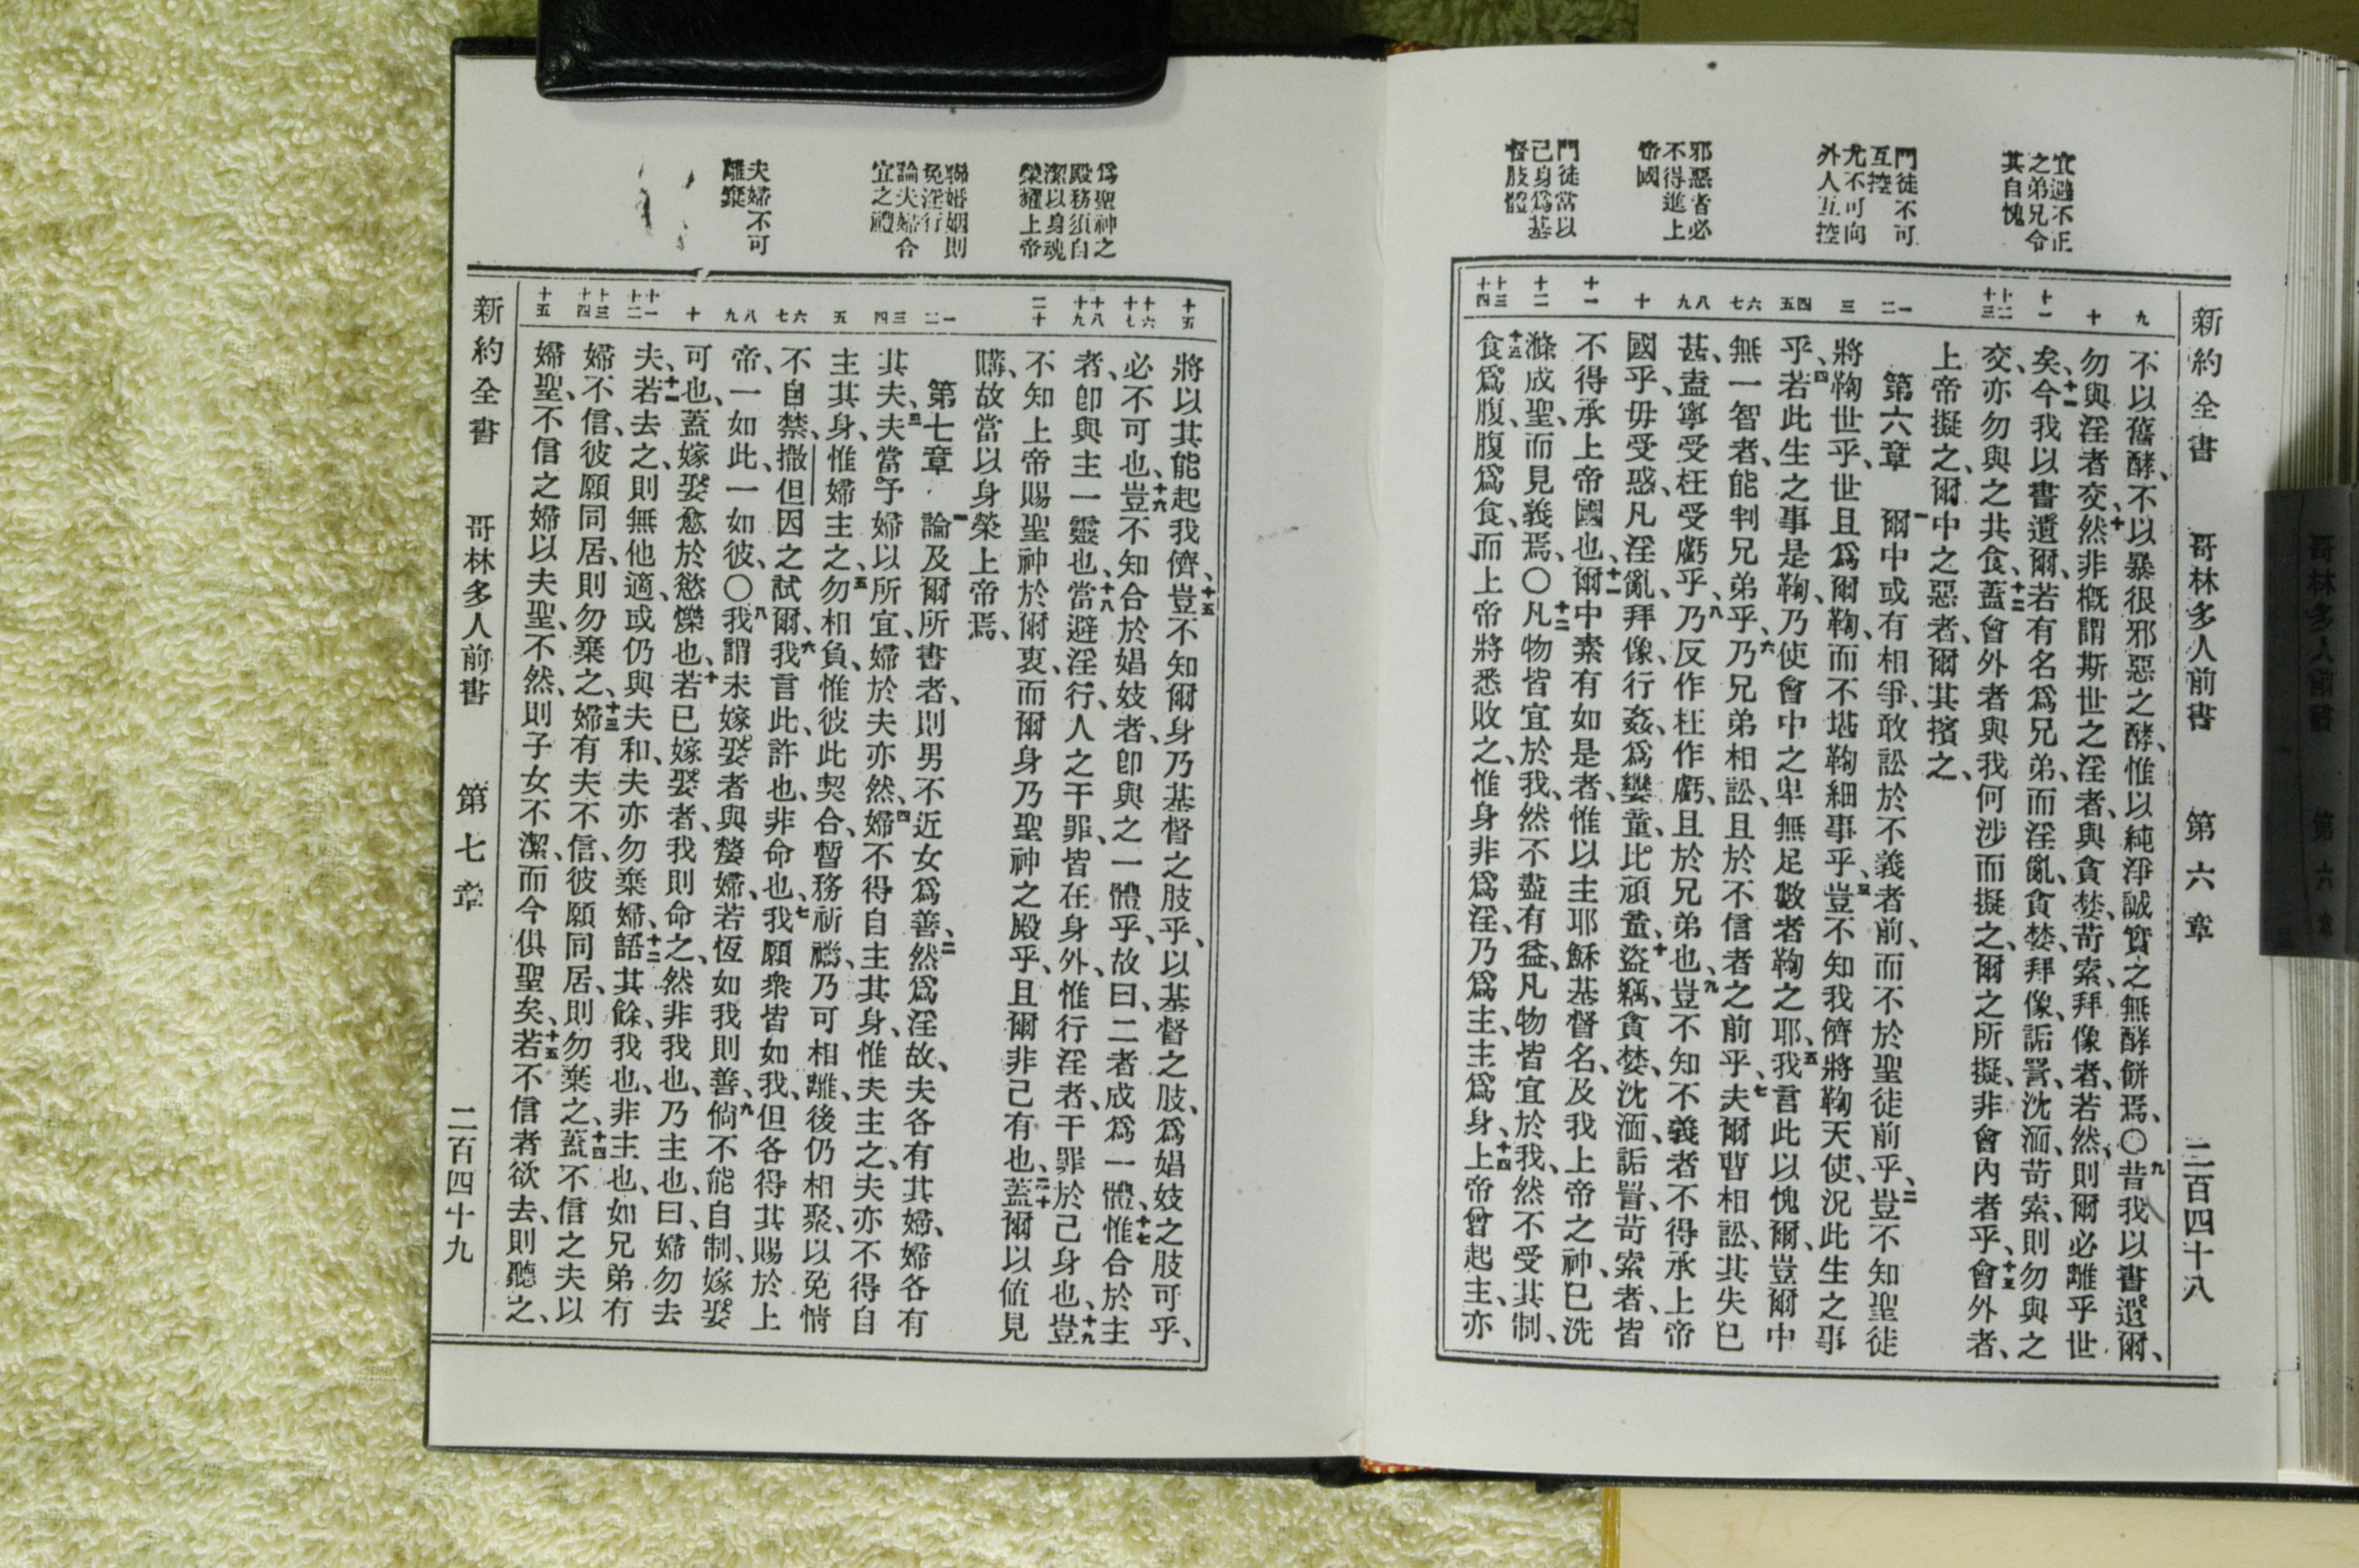 宜避不正
之弟兄令
其自愧
門徒不可
互控
尤不可向
外人互控
邪惡者必
不得進上
帝國
門徒當以
己身爲基
督肢體
新約全書 哥林多人前書 第六章 二百四十八
九
十
十一
十二
十三
一
二
三
四
五
六
七
八
九
十
十一
十二
十三
十四
不以舊酵、不以暴很邪惡之酵、惟以純淨誠實之無酵餅焉、○九昔我以書遺爾、
勿與淫者交、十然非概謂斯世之淫者、與貪婪、苛索、拜像者、若然、則爾必離乎世
矣、十一今我以書遺爾、若有名爲兄弟、而淫亂、貪婪、拜像、詬詈、沈湎、苛索、則勿與之
交、亦勿與之共食、十二蓋會外者與我何涉而擬之、爾之所擬、非會內者乎、十三會外者、
上帝擬之、爾中之惡者、爾其擯之、
第六章 一爾中或有相爭、敢訟於不義者前、而不於聖徒前乎、二豈不知聖徒
將鞫世乎、世且爲爾鞫、而不堪鞫細事乎、三豈不知我儕將鞫天使、況此生之事
乎、四若此生之事是鞫、乃使會中之卑無足數者鞫之耶、五我言此以愧爾、豈爾中
無一智者、能判兄弟乎、六乃兄弟相訟、且於不信者之前乎、七夫爾曹相訟、其失已
甚、盍寧受枉受虧乎、八乃反作枉作虧、且於兄弟也、九豈不知不義者不得承上帝
國乎、毋受惑、凡淫亂、拜像、行姦、爲孌童、比頑童、十盜竊、貪婪、沈湎、詬詈、苛索者、皆
不得承上帝國也、十一爾中素有如是者、惟以主耶穌基督名、及我上帝之神、已洗
滌、成聖、而見義焉、○十二凡物皆宜於我、然不盡有益、凡物皆宜於我、然不受其制、
十三食爲腹、腹爲食、而上帝將悉敗之、惟身非爲淫、乃爲主、主爲身、十四上帝曾起主、亦
爲聖神之
殿務須自
潔以身魂
榮耀上帝
聯婚姻則
免淫行
論夫婦合
宜之禮
夫婦不可
離棄
十五
十六
十七
十八
十九
二十
一
二
三
四
五
六
七
八
九
十
十一
十二
十三
十四
十五
將以其能起我儕、十五豈不知爾身乃基督之肢乎、以基督之肢、爲娼妓之肢可乎、
必不可也、十六豈不知合於娼妓者、卽與之一體乎、故曰、二者成爲一體、十七惟合於主
者、卽與主一靈也、十八當避淫行、人之干罪、皆在身外、惟行淫者、干罪於己身也、十九豈
不知上帝賜聖神於爾衷、而爾身乃聖神之殿乎、且爾非己有也、二十蓋爾以値見
購、故當以身榮上帝焉、
第七章 一論及爾所書者、則男不近女爲善、二然爲淫故、夫各有其婦、婦各有
其夫、三夫當予婦以所宜、婦於夫亦然、四婦不得自主其身、惟夫主之、夫亦不得自
主其身、惟婦主之、五勿相負、惟彼此契合、暫務祈禱、乃可相離、後仍相聚、以免情
不自禁、撒但因之試爾、六我言此、許也、非命也、七我願衆皆如我、但各得其賜於上
帝、一如此、一如彼、○八我謂未嫁娶者與嫠婦、若恆如我則善、九倘不能自制、嫁娶
可也、蓋嫁娶愈於慾爍也、十若已嫁娶者、我則命之、然非我也、乃主也、曰、婦勿去
夫、十一若去之、則無他適、或仍與夫和、夫亦勿棄婦、十二語其餘、我也、非主也、如兄弟有
婦不信、彼願同居、則勿棄之、十三婦有夫不信、彼願同居、則勿棄之、十四蓋不信之夫以
婦聖、不信之婦以夫聖、不然、則子女不潔、而今俱聖矣、十五若不信者欲去、則聽之、
新約全書 哥林多人前書 第七章 二百四十九